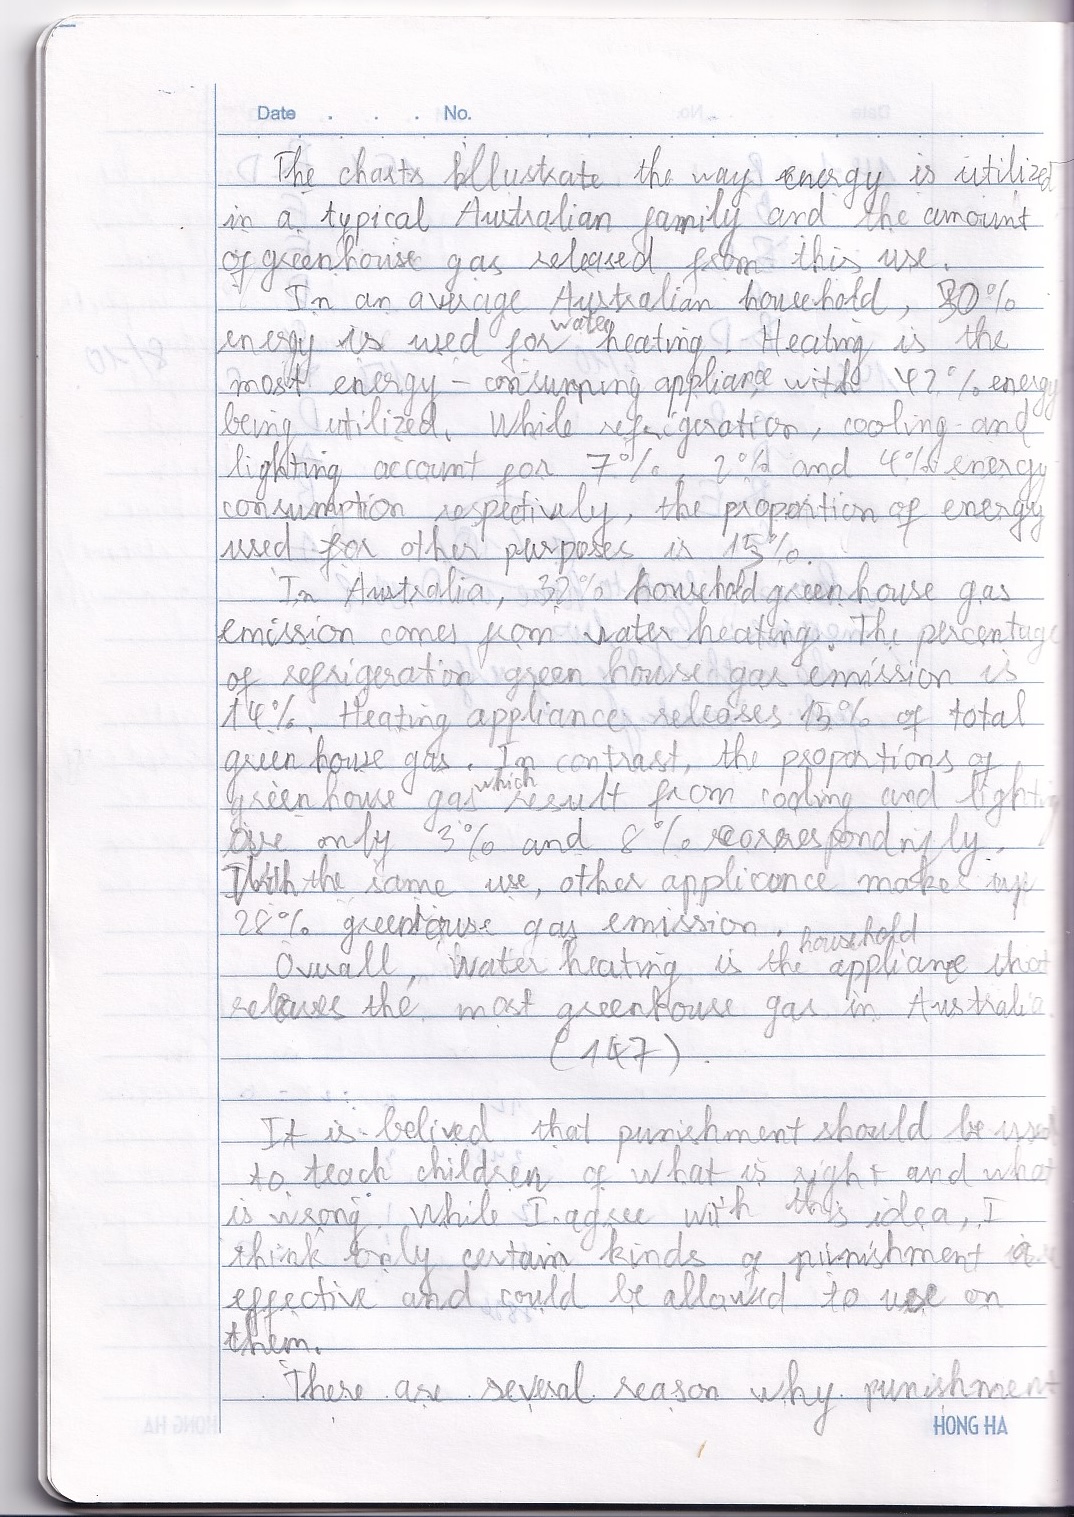 Date . . . No.
The charts illustrate the way energy is utilized
in a typical Australian family and the amount
of greenhouse gas released from this use.
In an average Australian household, 30%
energy is used for water heating. Heating is the
most energy - consumping appliance with 42% energy
being utilized. While refrigeration, cooling and
lighting account for 7%, 2% and 4% energy
consumption respectively, the proportion of energy
used for other purposes is 15%.
In Australia, 32% household greenhouse gas
emission comes from water heating. The percentage
of refrigeration green house gas emission is
14%. Heating appliance releases 15% of total
green house gas. In contrast, the proportions of
greenhouse gas which result from cooling and lighting
are only 3% and 8%
With the same use, other appliance makes up
28% greenhouse gas emission.
Overall, water heating is the household appliance that
releases the most greenhouse gas in Australia.
(147).
It is belived that punishment should be used
to teach children of what is right and what
is wrong. While I agree with this idea, I
think only certain kinds of punishment are
effective and could be allowed to use on
them.
There are several reason why punishment
HONG HA